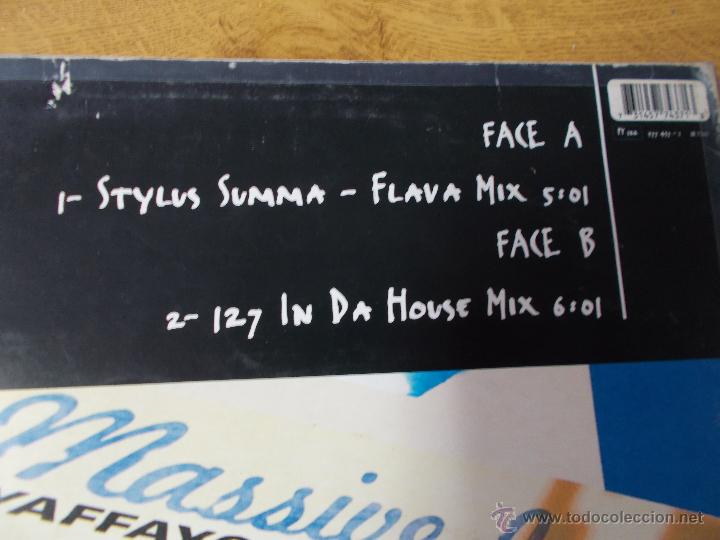 FACE A
1- STYLUS SUMMA - FLAVA MIX 5:01
FACE B
2- 127 IN DA HOUSE MIX 6:01
Massive
YAFFAY
© www.todocoleccion.net